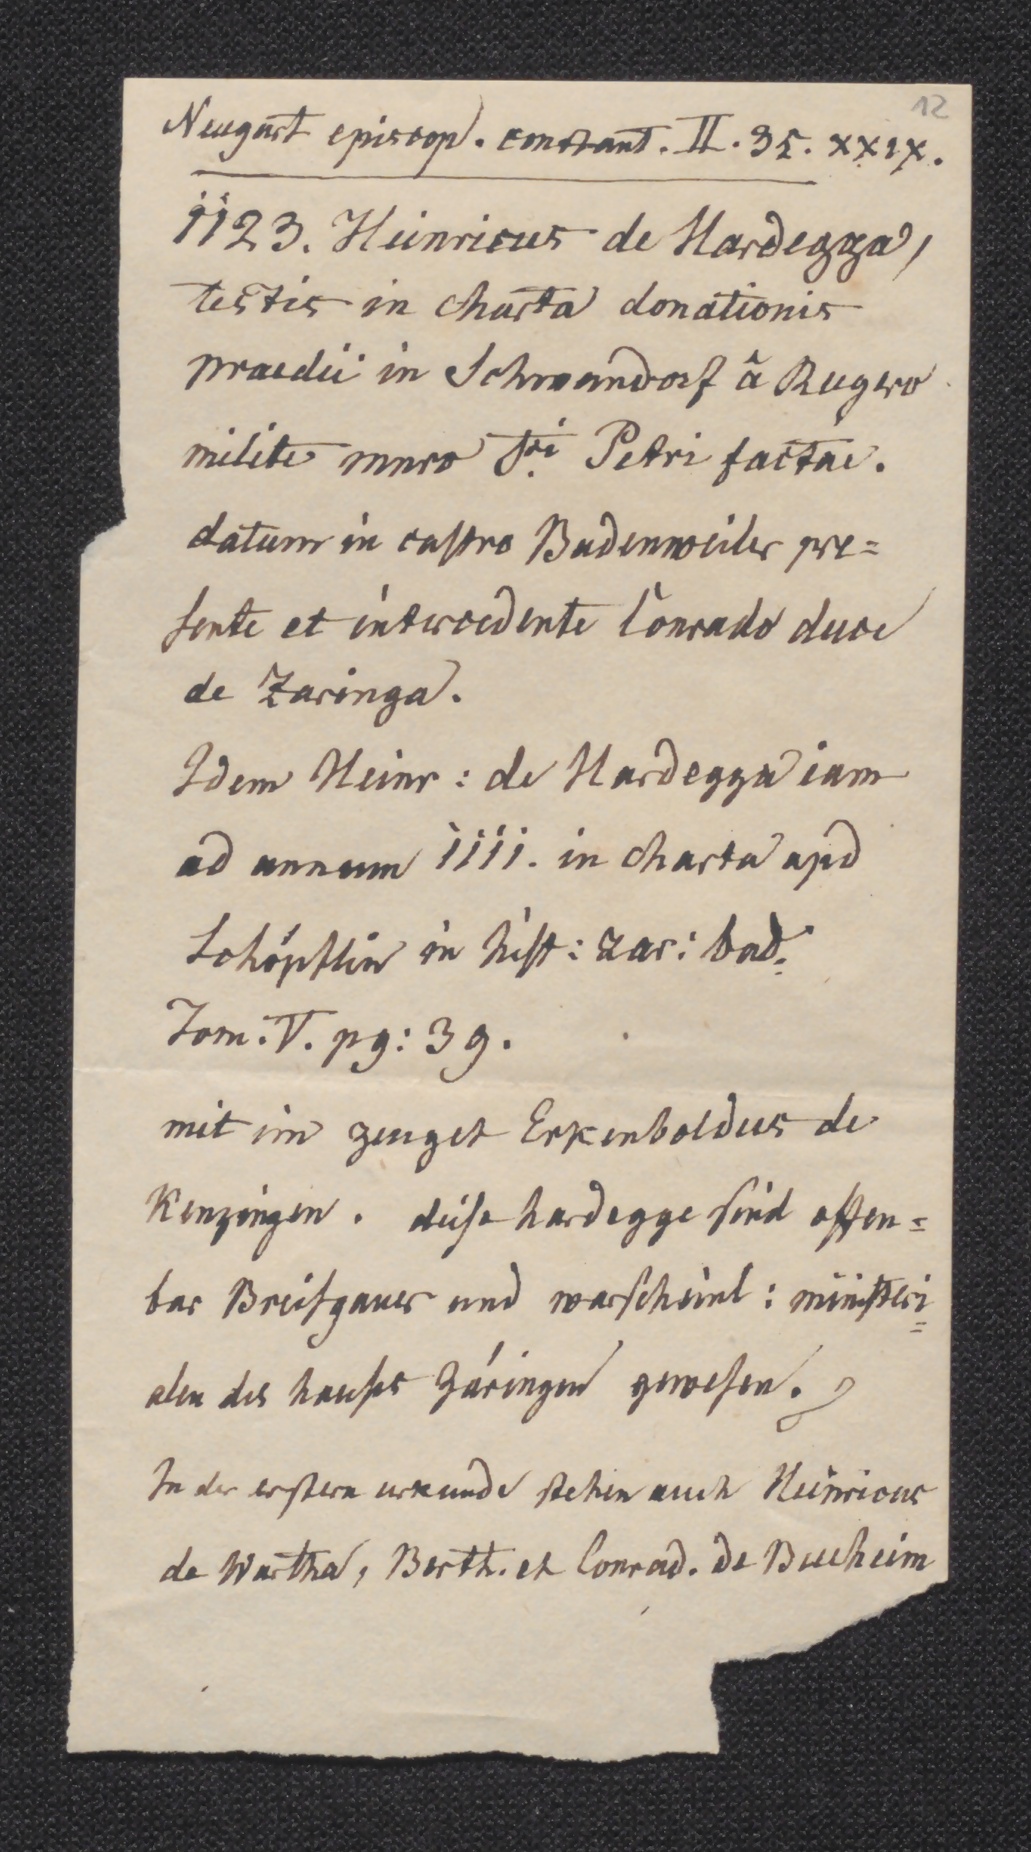 12
Neugart episcop. constant. II. 35. XXIX.
1123. Heinricus de Hardegga,
testis in charta donationis
praedii in Schwandorf â Rugero
milite mnro Sti Petri factae.
datum in castro Badenweiler pre=
sente et intercedente Conrado duce
de Zaringa.
Idem Heinr: de Hardegga iam
ad annum 1111. in charta apd
Schöpflin in hist: zar: bad:
Tom. V. pg: 39.
mit im zeuget Erkenboldus de
Kenzingen. diese hardegge sind offen=
bar Breisgauer und warscheinl: ministeri=
alen des hauses Zäringen gewesen.
In der erstern urkunde stehen auch Heinricus
de Wartha, Berth. et Conrad. de Bucheim